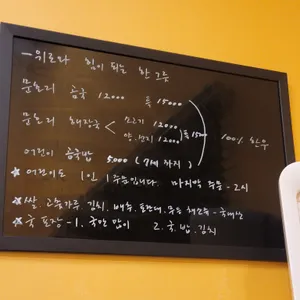 위로와 힘이 되는 한 그릇
문토리 곰국 12000 특 15000
문토리 해장국 < 소고기 12000
양.선지 12000 특 15000
100% 한우
어린이 곰국밥 5000 (7세 까지)
★ 어린이도 1인 1주문입니다. 마지막 주문 - 2시
★ 쌀. 고춧가루. 김치. 배추. 모든 채소류 - 국내산
★ 국 포장 - 1. 국만 많이 2. 국. 밥. 김치